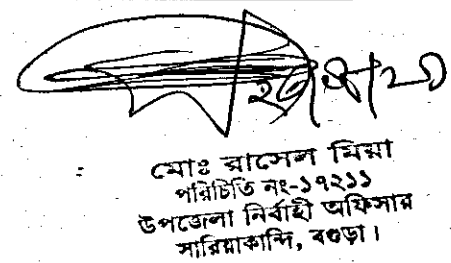 মোঃ রাসেল মিয়া
পরিচিতি নং-১৭২১১
উপজেলা নির্বাহী অফিসার
সারিয়াকান্দি, বগুড়া।